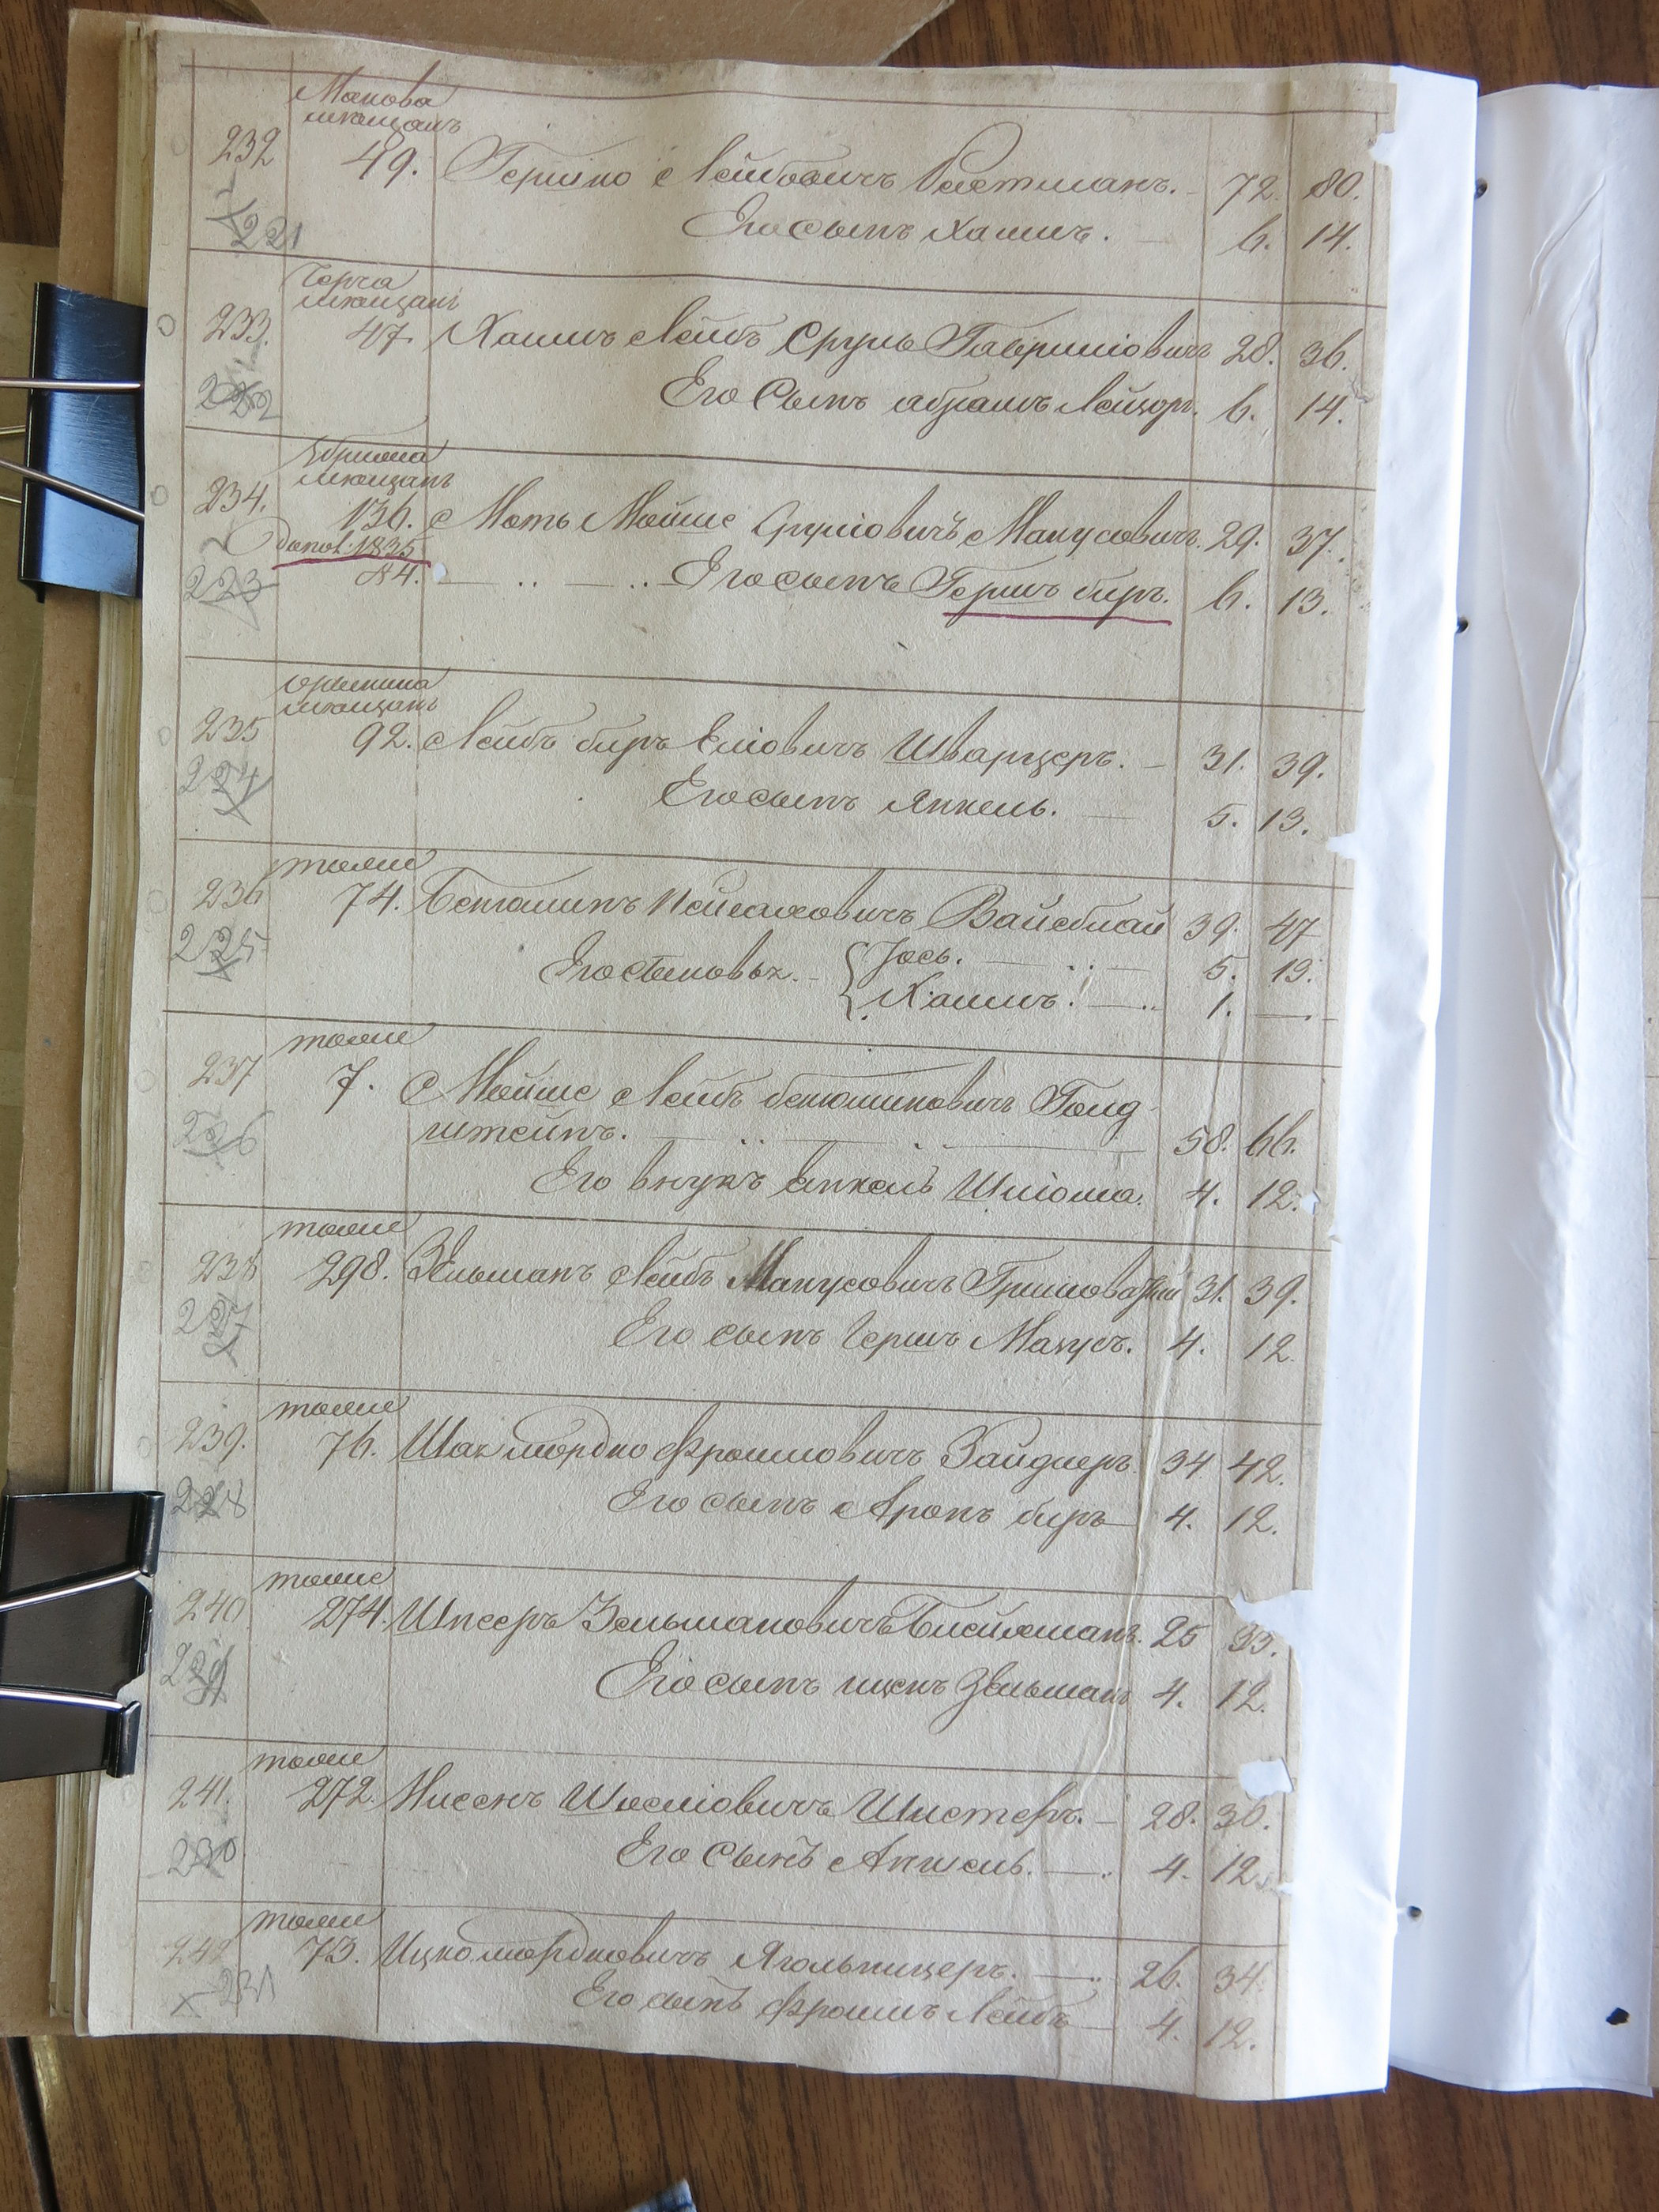 мещанъ
232 49. Гершко Лейбовичъ 72. 80.
221 Его сынъ Хаимъ. 6. 14.
мещанъ
233. 47. Хаимъ Лейбъ Сруль Гавриліовичъ 28. 36.
222 Его Сынъ абрамъ Лейзоръ. 6. 14.
мещанъ
234. 136. Моть Мойше Сруліовичъ Манусовичъ. 29. 37.
допол: 1835
223 84. Его сынъ Гершъ биръ. 6. 13.
мещанъ
235 92. Лейбъ биръ Еліовичъ Шварцеръ. 31. 39.
224 Его сынъ Янкель. 5. 13.
тоже
236 74. Бенюминъ Пейсаховичъ Вайсблай 39. 47
225 Его сыновья. Іось. 5. 13.
Хаимъ. 1.
тоже
237 7. Мойше Лейбъ бенюминовичъ Голд
226 штейнъ. 58. 66.
Его внукъ Янкель Шліома. 4. 12.
тоже
238 298. Зельманъ Лейбъ Манусовичъ 31. 39.
227 Его сынъ Гершъ Манусъ. 4. 12.
тоже
239. 76. Шах мордко Фроимовичъ Зайдлеръ. 34 42.
228 Его сынъ Аронъ биръ 4. 12.
тоже
240 274. Шисеръ Зельмановичъ Блейхманъ. 25 33.
229 Его сынъ ицекъ Зельманъ 4. 12.
тоже
241. 272. Нисенъ Шмеліовичъ Шистеръ. 28. 36.
230 Его Сынъ Аншель. 4. 12
тоже
242 73. Ицко мордковичъ Ягольницеръ. 26. 34.
231 Его сынъ Фроимъ Лейбъ 4. 12.